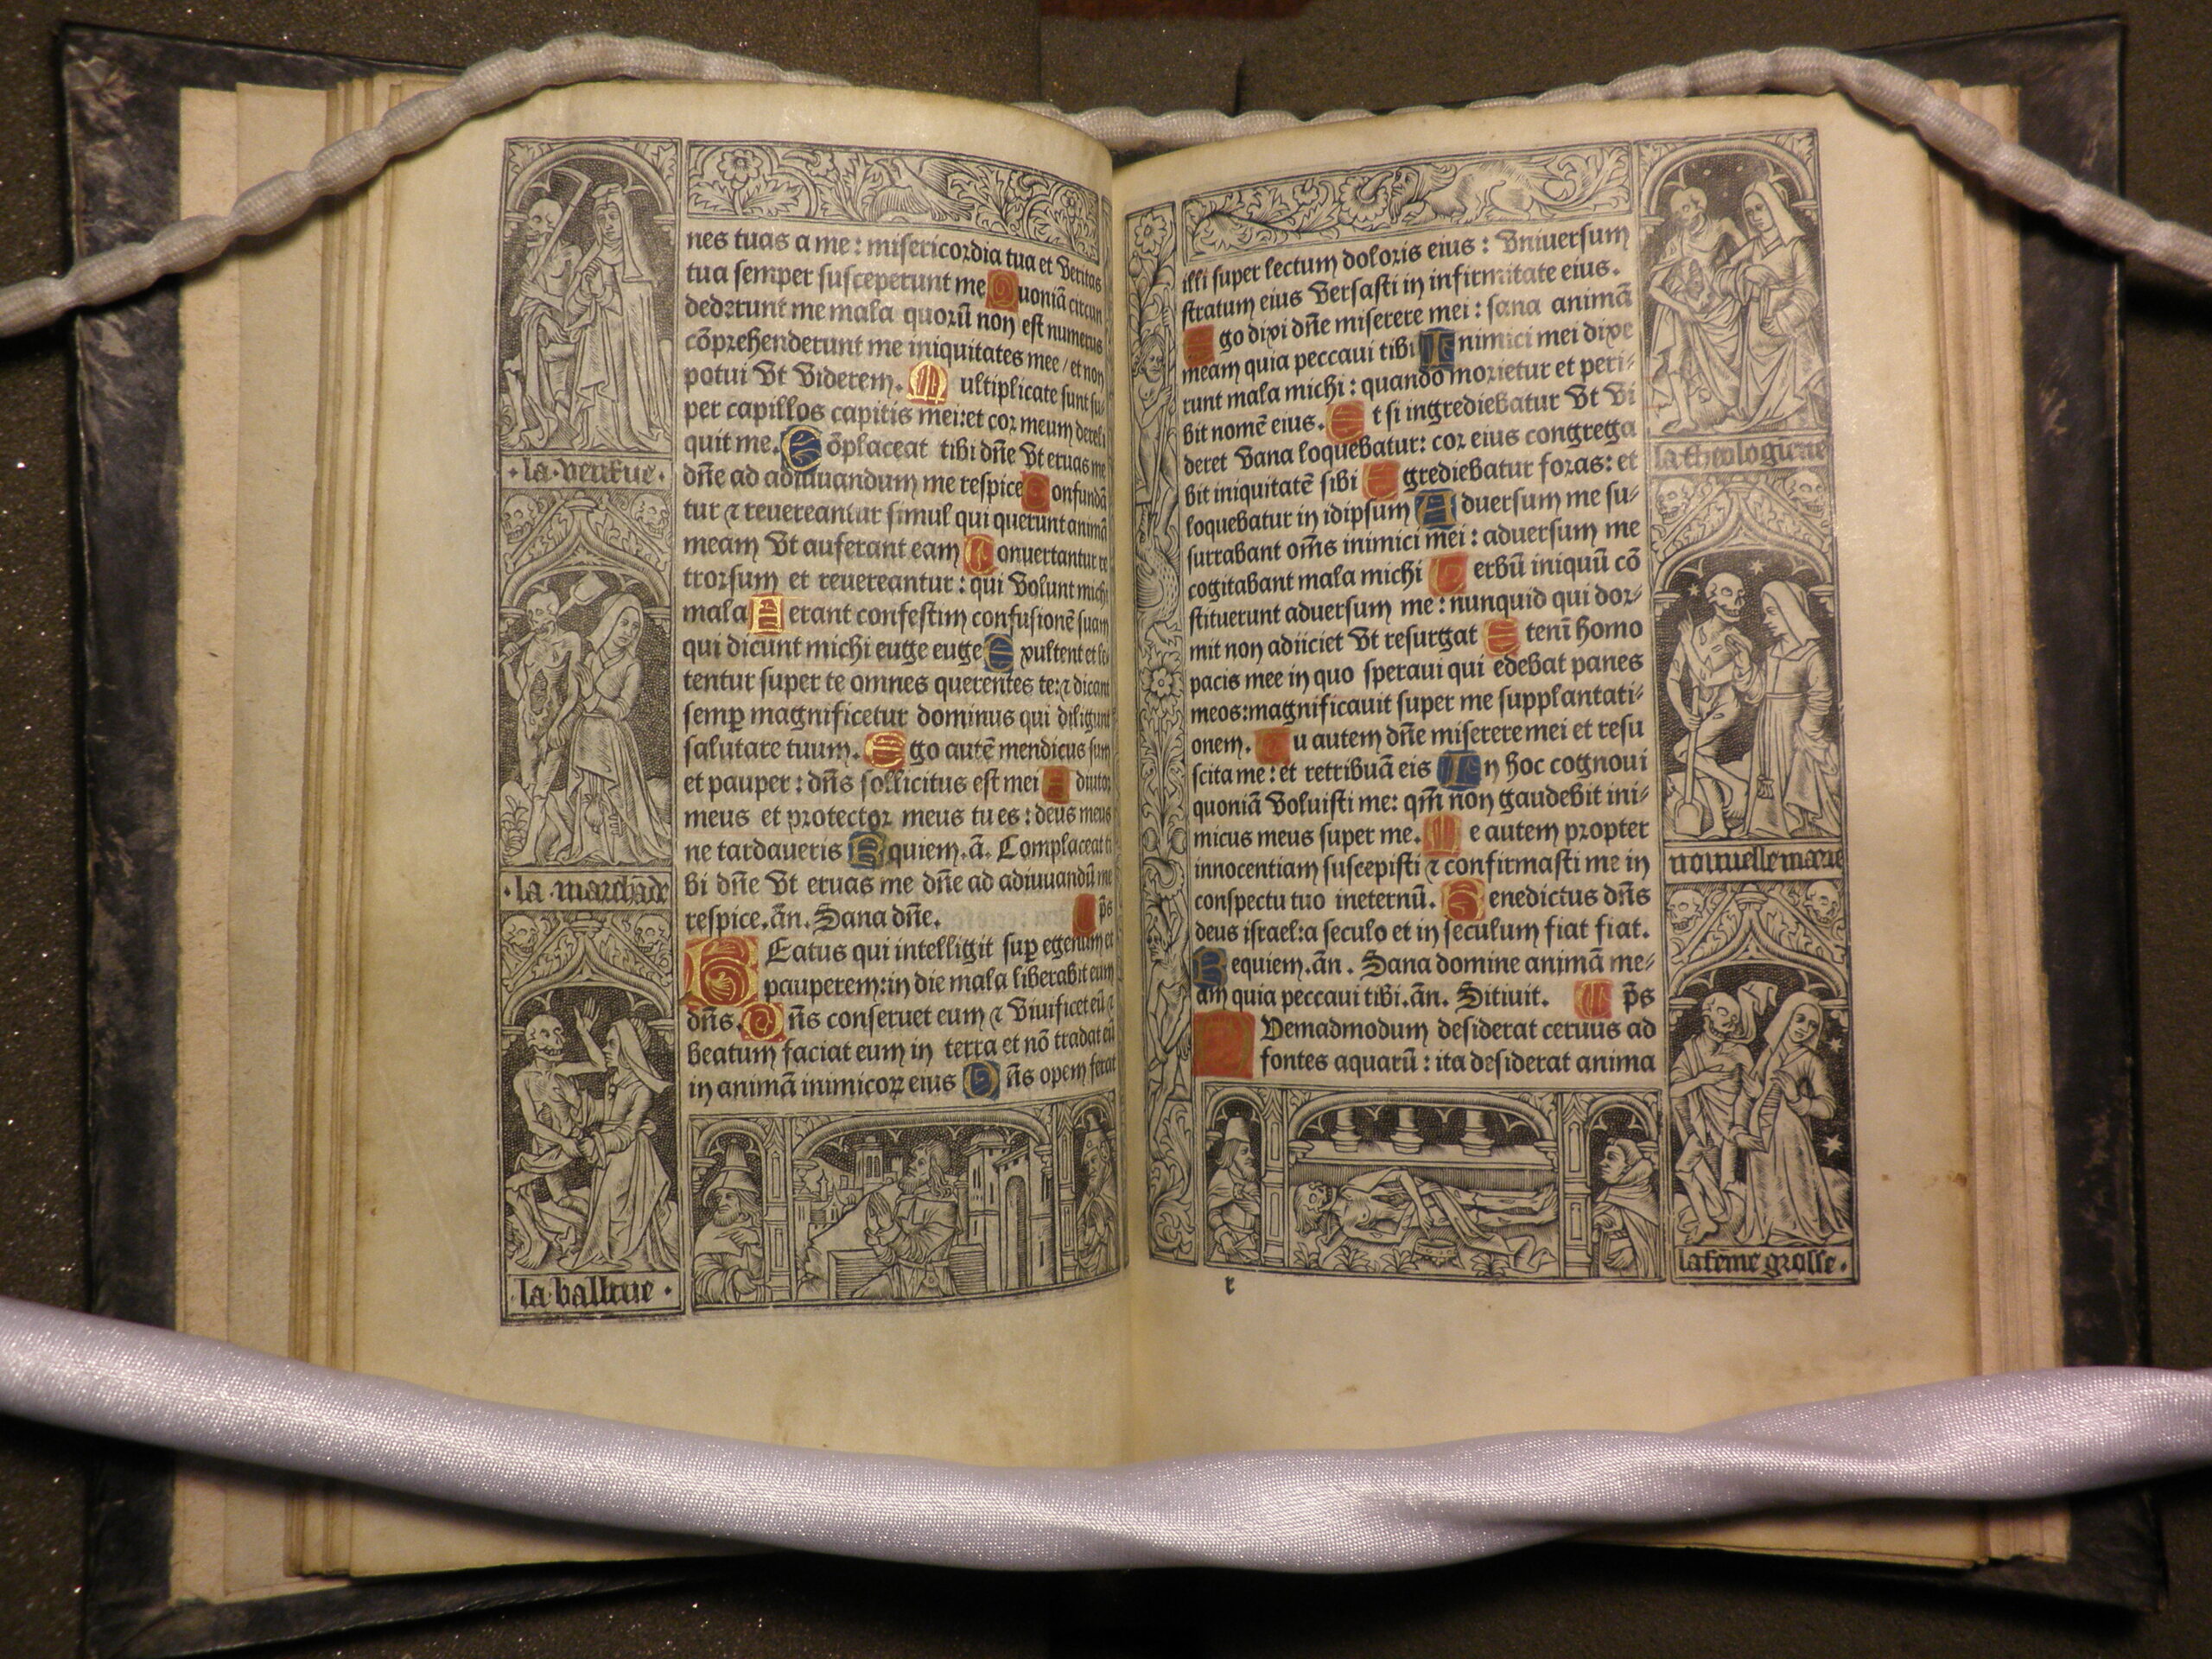 nes tuas a me: misericordia tua et veritas
tua semper susceperunt me Quoniā circun
dederunt me mala quorū non est numerus
cōprehenderunt me iniquitates mee / et non
potui vt viderem. Multiplicate sunt su-
per capillos capitis mei: et cor meum dereli
quit me. Cōplaceat tibi dn̄e vt eruas me
dn̄e ad adiuuandum me respice Confundā
tur ⁊ reuereantur simul qui querunt animā
meam vt auferant eam Conuertantur re
trorsum et reuereantur: qui volunt michi
mala Ferant confestim confusionē suam
qui dicunt michi euge euge Exultent et le
tentur super te omnes querentes te: ⁊ dicant
semꝑ magnificetur dominus qui diligunt
salutare tuum. Ego autē mendicus sum
et pauper: dn̄s sollicitus est mei Adiutor
meus et protector meus tu es: deus meus
ne tardaueris Requiem. ā. Complaceat ti
bi dn̄e vt eruas me dn̄e ad adiuuandū me
respice. ān. Sana dn̄e. p̄s
Beatus qui intelligit suꝑ egenum et
pauperem: in die mala liberabit eum
dn̄s. Dn̄s conseruet eum ⁊ viuificet eū ⁊
beatum faciat eum in terra et nō tradat eū
in animā inimicoꝝ eius Dn̄s opem ferat
·la·veufue·
·la marchāde
·la·baillyue·
illi super lectum doloris eius: vniuersum
stratum eius versasti in infirmitate eius.
Ego dixi dn̄e miserere mei: sana animā
meam quia peccaui tibi Inimici mei dixe
runt mala michi: quando morietur et peri-
bit nomē eius. Et si ingrediebatur vt vi
deret vana loquebatur: cor eius congrega
bit iniquitatē sibi Egrediebatur foras: et
loquebatur in idipsum Aduersum me su-
surrabant om̄s inimici mei: aduersum me
cogitabant mala michi Verbū iniquū cō
stituerunt aduersum me: nunquid qui dor-
mit non adiiciet vt resurgat Etenī homo
pacis mee in quo speraui qui edebat panes
meos: magnificauit super me supplantati-
onem. Tu autem dn̄e miserere mei et resu
scita me: et retribuā eis In hoc cognoui
quoniā voluisti me: qm̄ non gaudebit ini-
micus meus super me. Me autem propter
innocentiam suscepisti ⁊ confirmasti me in
conspectu tuo ineternū. Benedictus dn̄s
deus israel: a seculo et in seculum fiat fiat.
Requiem. ān. Sana domine animā me-
am quia peccaui tibi. ān. Sitiuit. p̄s
Quemadmodum desiderat ceruus ad
fontes aquarū: ita desiderat anima
r
la theologiene
nouuelle marie
la fēme grosse·